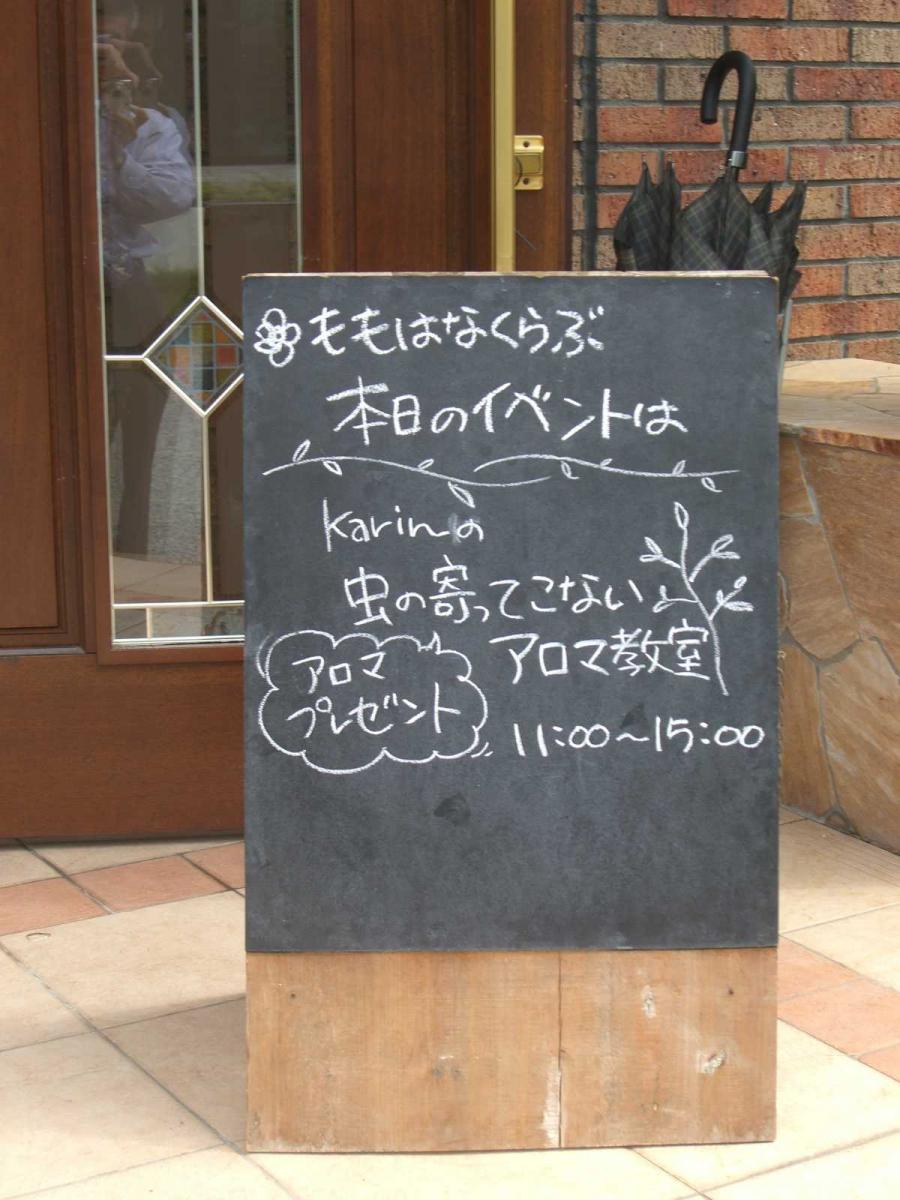 ももはなくらぶ
本日のイベントは
karinの
虫の寄ってこない
アロマ教室
アロマ
プレゼント
11:00〜15:00